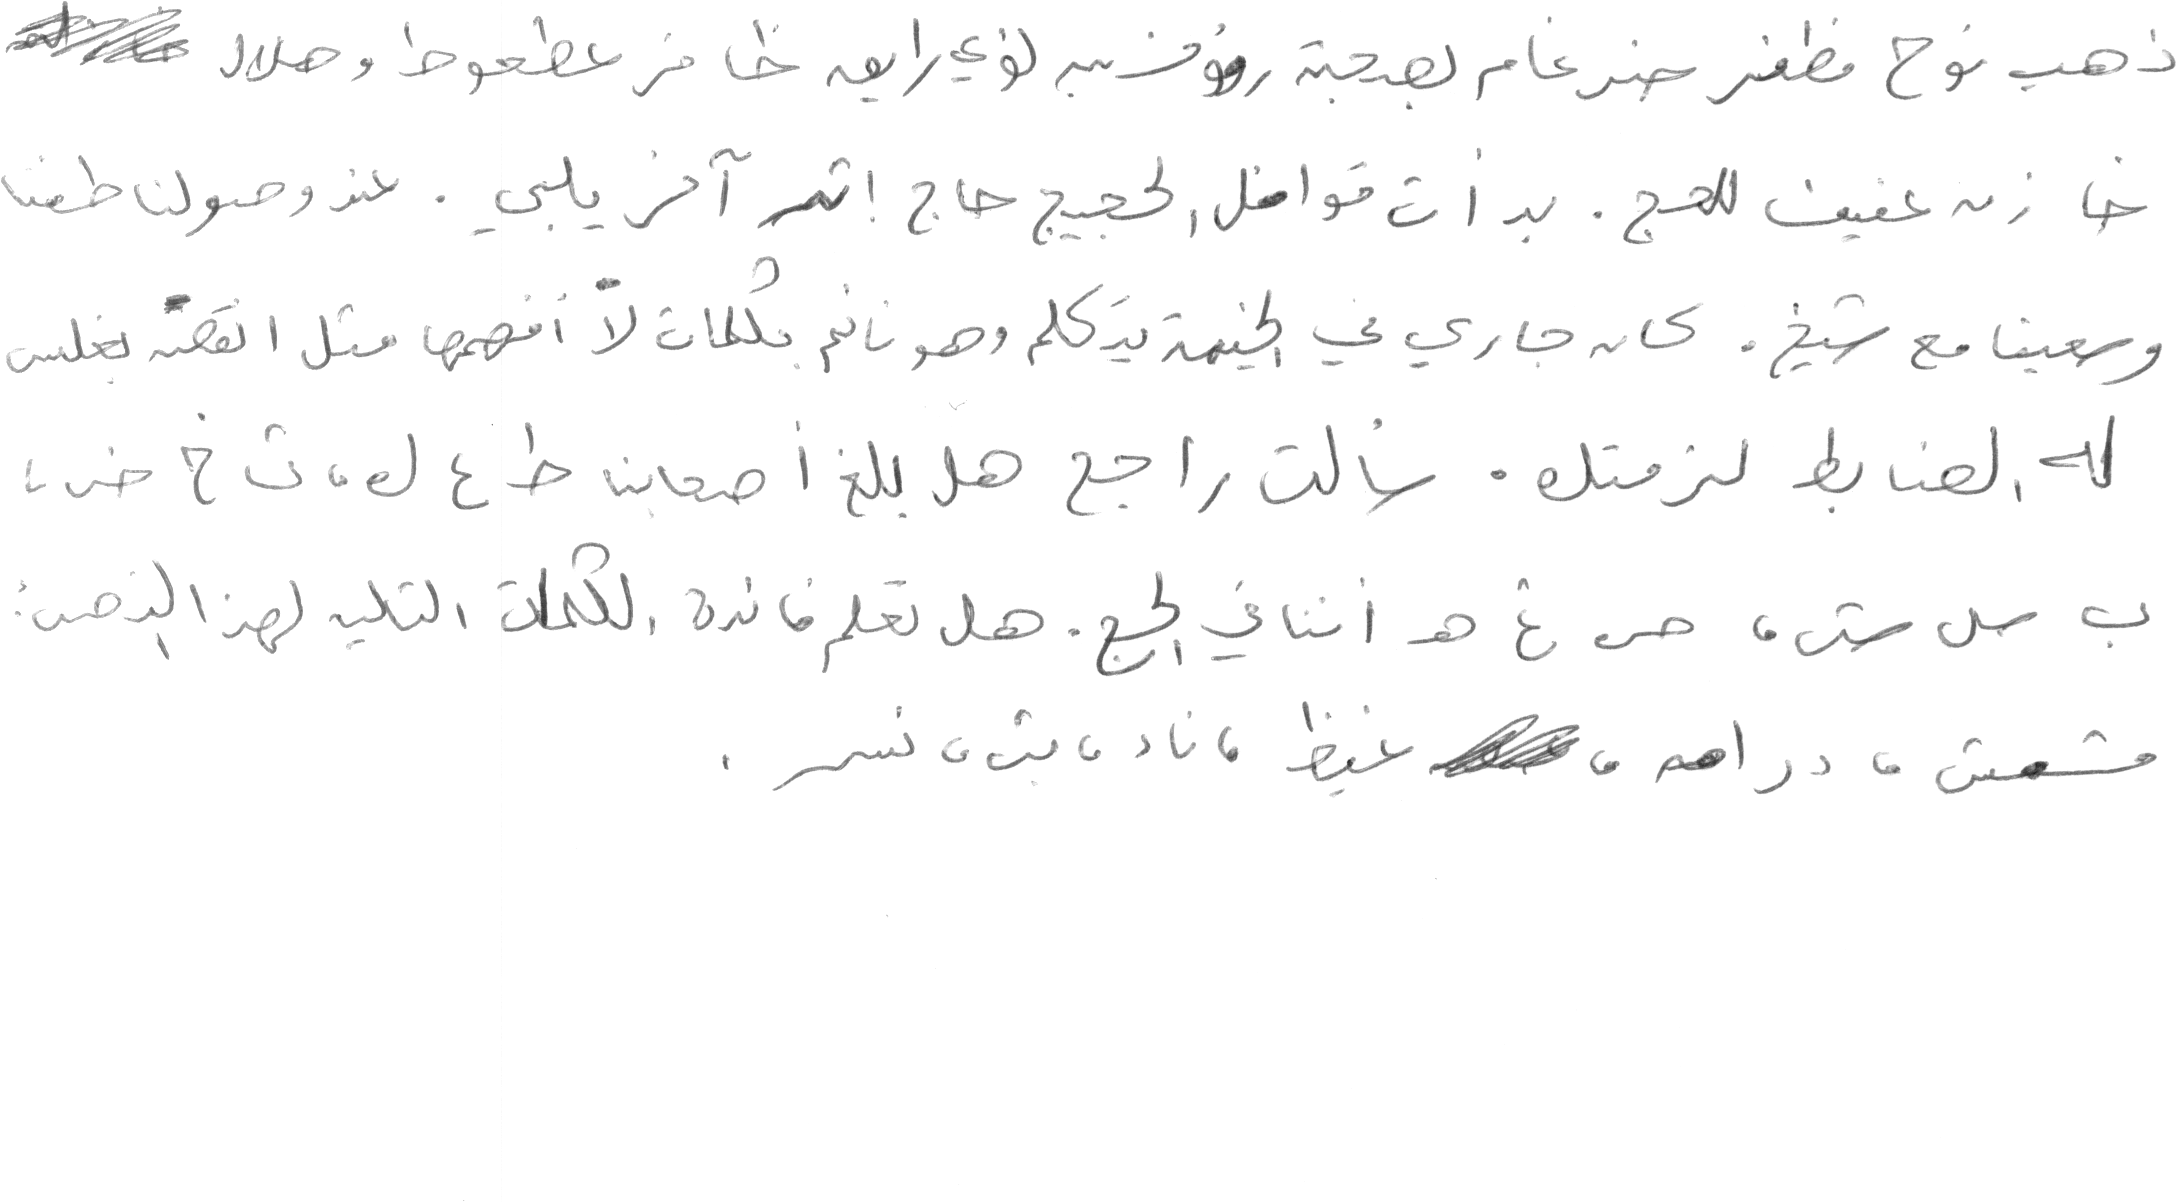 ذهب نوح مظفر ضرغام بصحبة رؤوف بن لؤي رايق ظافر عطعوط و هلال
خازن عفيف للحج . بدأت قوافل الحجيج حاج إثر آخر يلبي . عند وصولنا طفنا
وسعينا مع شيخ . كان جاري في الخيمة يتكلم وهو نائم بكلمات لا أفهمها مثل انقضّ بغلس
لك الضابط لزمتك . سألت راجح هل بلغ أصحابنا ط ع ك ، ث خ ض ،
ب س ش ، ص غ هـ أننا في الحج . هل تعلم فائدة الكلمات التالية لهذا النص :
مشمش ، دراهم ، غيظ ، ناد ، بث ، نسر .